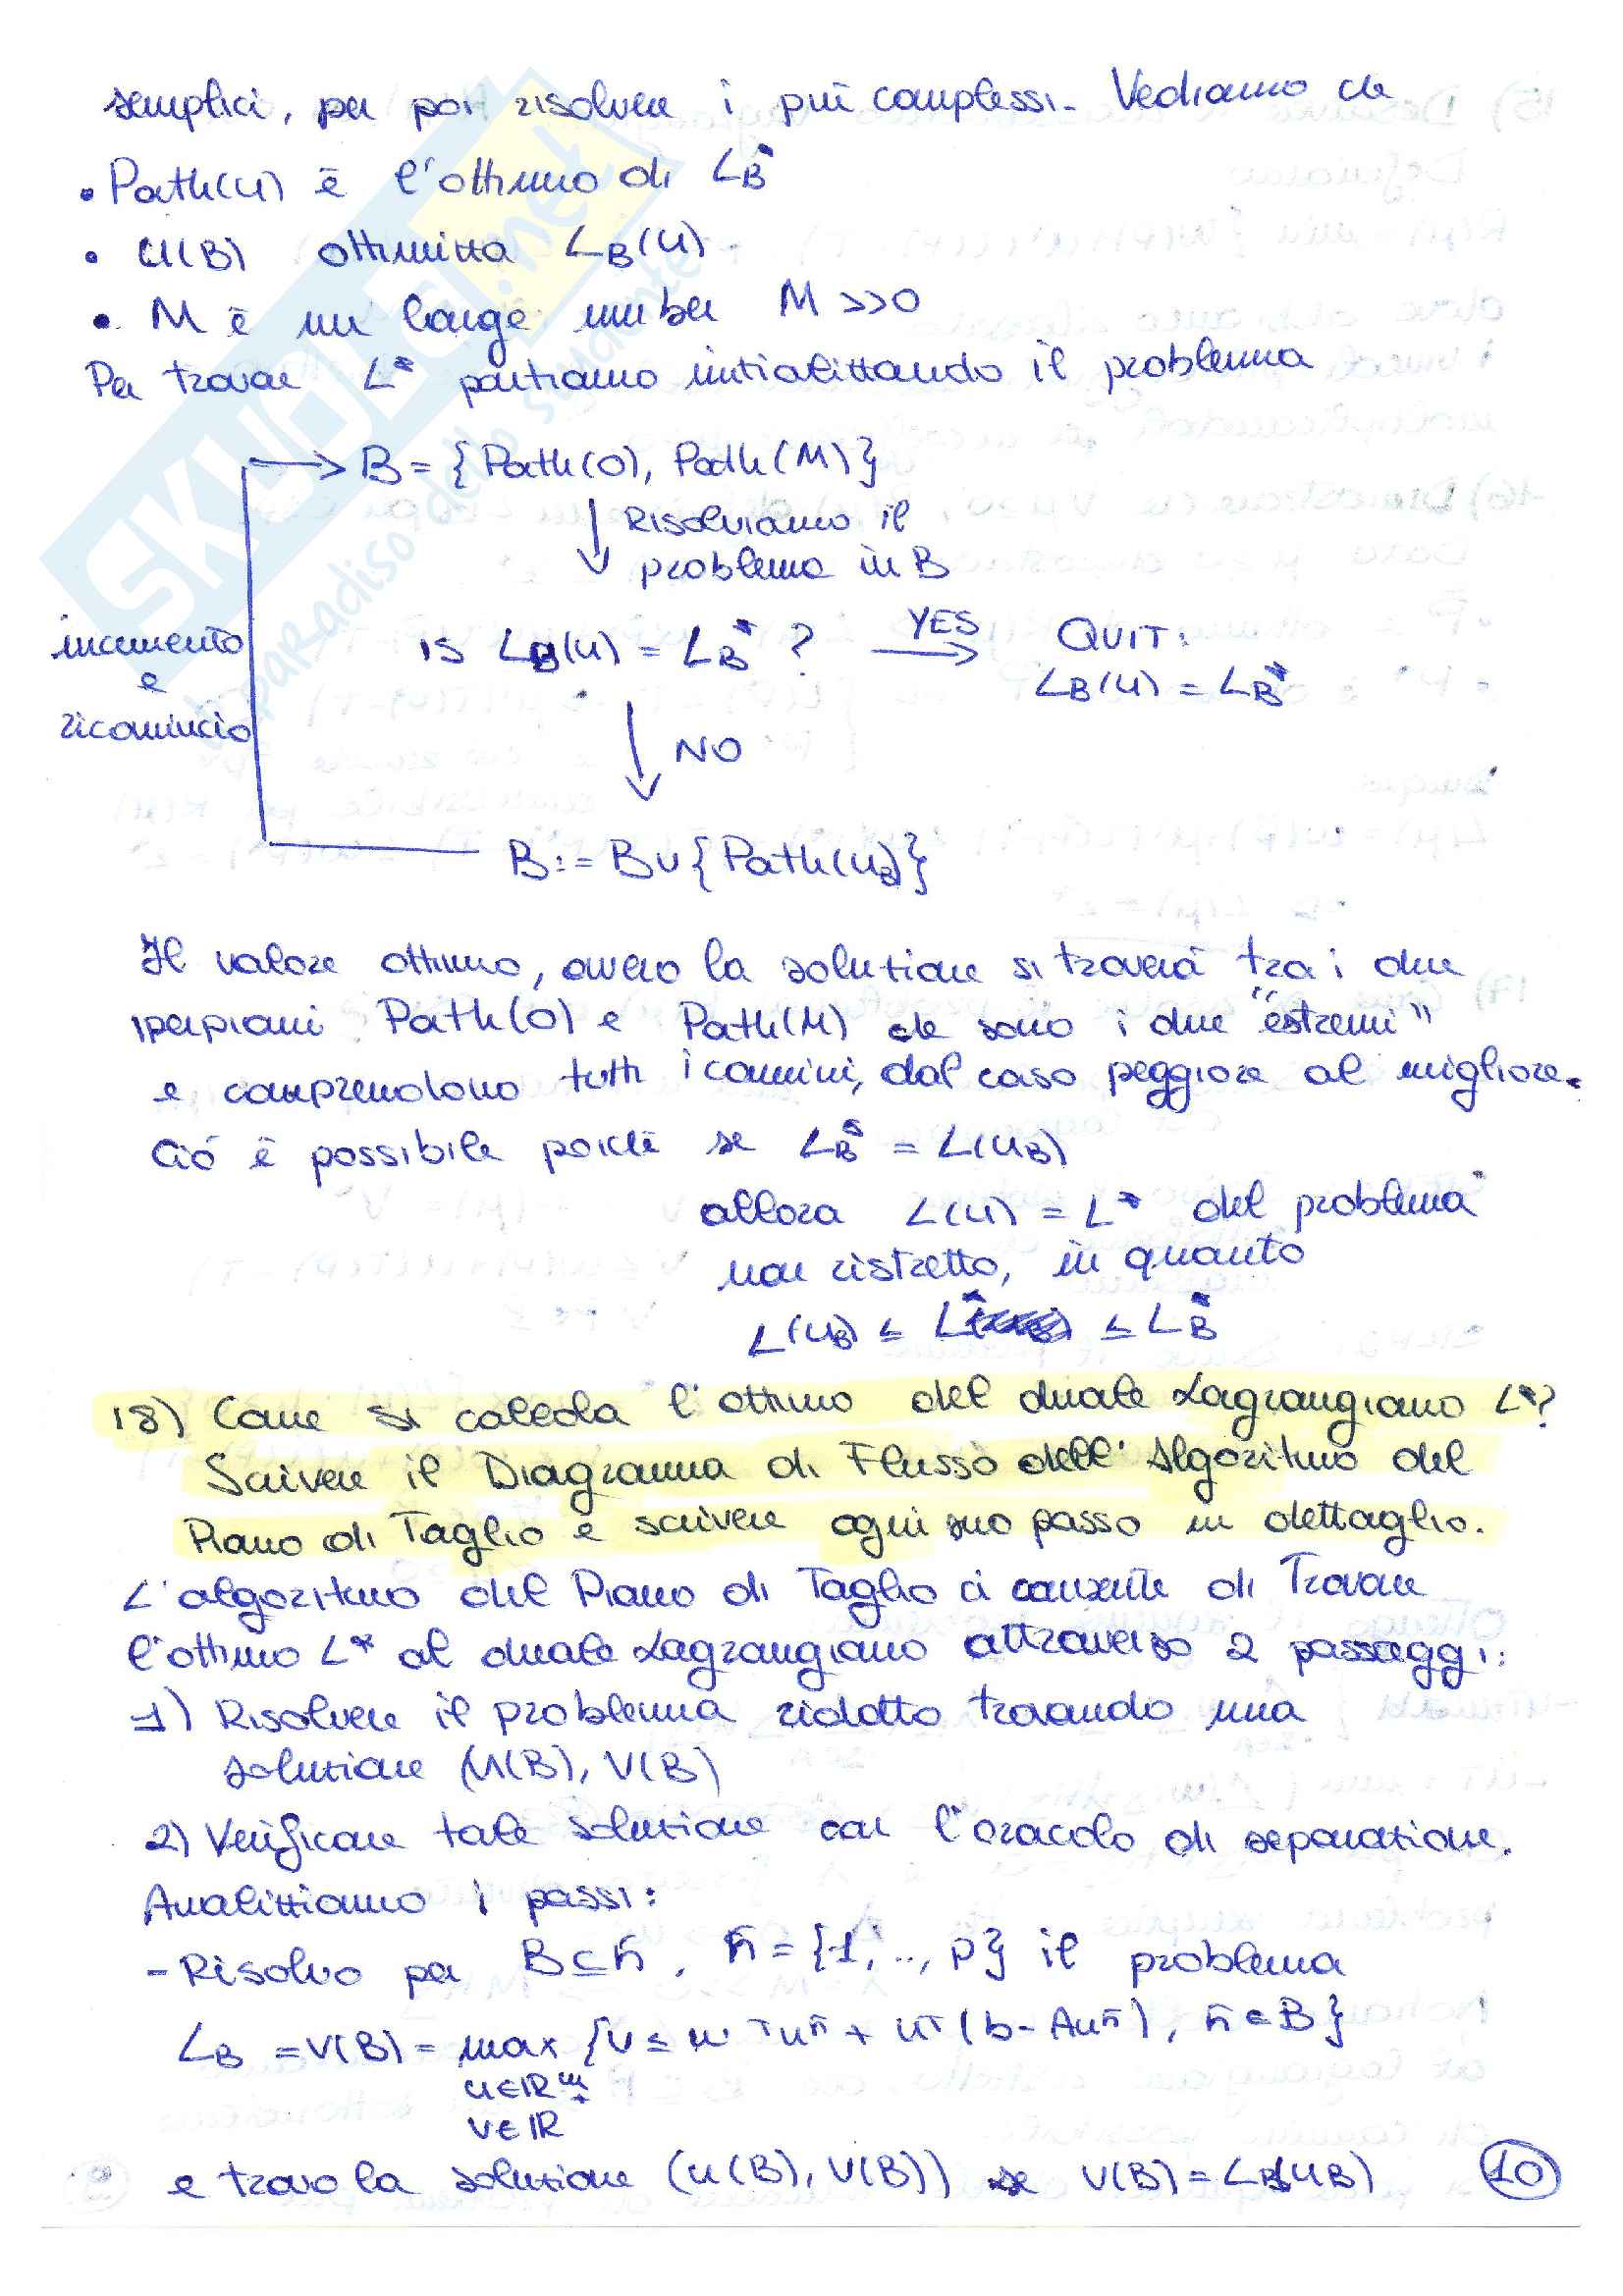 semplici, per poi risolvere i più complessi. Vediamo che
• Path(u) è l'ottimo di L_B*
• U(B) ottimizza L_B(u)
• M è un large number M >>0
Per trovare L* partiamo inizializzando il problema
→ B = {Path(0), Path(M)}
↓ Risolviamo il
problema in B
incremento
e
ricomincio
is L_B(u) = L_B* ? YES → QUIT:
L_B(u) = L_B*
↓ NO
B := B∪{Path(u_B)}
Il valore ottimo, ovvero la soluzione si troverà tra i due
iperpiani Path(0) e Path(M) che sono i due "estremi"
e comprendono tutti i cammini, dal caso peggiore al migliore.
Ciò è possibile poiché se L_B* = L(u_B)
allora L(u) = L* del problema
non ristretto, in quanto
L(u_B) ≤ L* ≤ L_B*
18) Come si calcola l'ottimo del duale Lagrangiano L*?
Scivere il Diagramma di Flusso dell'Algoritmo del
Piano di Taglio e scrivere ogni suo passo in dettaglio.
L'algoritmo del Piano di Taglio ci consente di Trovare
l'ottimo L* al duale Lagrangiano attraverso 2 passaggi:
1) Risolvere il problema ridotto trovando una
soluzione (U(B), V(B))
2) Verificare tale soluzione con l'oracolo di separazione.
Analizziamo i passi:
- Risolvo per B⊆ñ, ñ = {1,.., p} il problema
L_B = V(B) = max {V ≤ w^T u^ñ + u^T (b - Au^ñ), ñ ∈ B}
u∈IR^m_+
V∈IR
e trovo la soluzione (u(B), V(B)) se V(B) = L_B(u_B)
10
SKUOLA.net
il paradiso dello studente